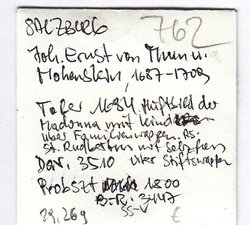 SALZBURG 762
Joh. Ernst von Thun u.
Hohenstein, 1687-1709
Taler 1694, Hüftbild der
Madonna mit Kind
über Familienwappen. Rs.
St. Rudbertus mit Salzfass
Dav. 3510 über Stiftswappen
Probszt 1800
B.-R. 3447
29,26 g SS-V €